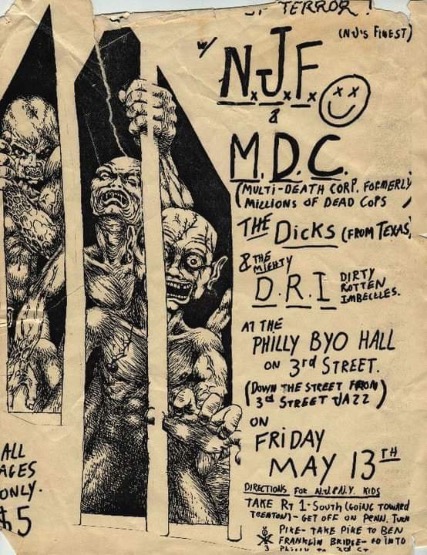 OF TERROR!
W/ N.J.F. (NJ'S FINEST)
&
M.D.C.
(MULTI-DEATH CORP. FORMERLY
MILLIONS OF DEAD COPS
THE Dicks (FROM TEXAS)
& THE MIGHTY
D.R.I DIRTY
ROTTEN
IMBECILES.
AT THE
PHILLY BYO HALL
ON 3rd STREET.
(DOWN THE STREET FROM
3rd STREET JAZZ)
ON
FRIDAY
MAY 13TH
ALL
AGES
ONLY.
$5
DIRECTIONS FOR N.J. & N.Y. KIDS
TAKE RT 1-SOUTH (GOING TOWARD
TRENTON)- GET OFF ON PENN. TURN
PIKE- TAKE PIKE TO BEN
FRANKLIN BRIDGE- GO INTO